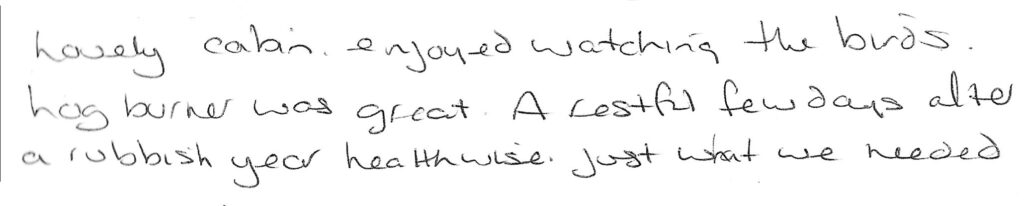 Lovely cabin. enjoyed watching the birds.
Log burner was great. A restful few days after
a rubbish year healthwise. Just what we needed